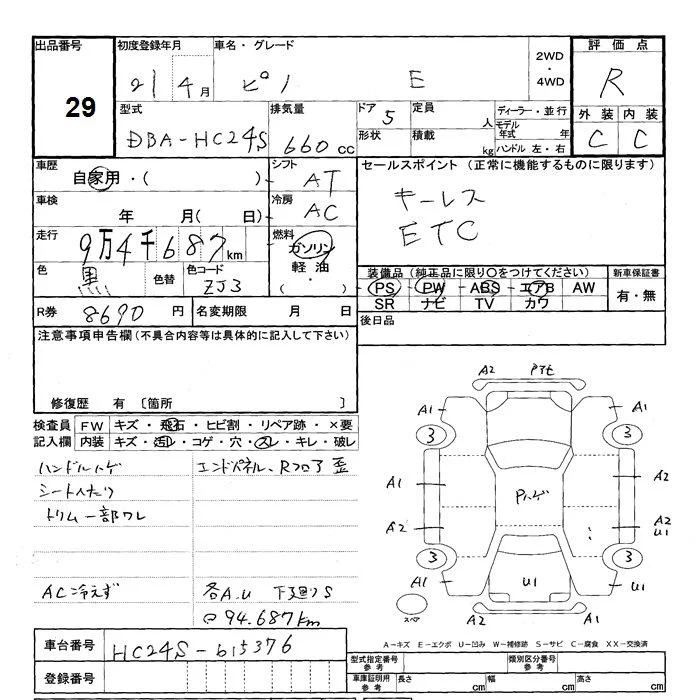 出品番号 初度登録年月 車名・グレード 2WD・4WD 評価点
29 21 4月 ピノ E R
型式 排気量 ドア 定員 ディーラー・並行 外装 内装
DBA-HC24S 660cc 5 人 モデル年式 年 C C
形状 積載 kg ハンドル 左・右
車歴 シフト セールスポイント (正常に機能するものに限ります)
自家用・( ) AT キーレス
車検 冷房 ETC
年 月( 日) AC
走行 燃料
9万4千687km ガソリン
色 色替 色コード 軽油 装備品 (純正品に限り○をつけてください) 新車保証書
黒 ZJ3 ・( ) PS PW ABS エアB AW 有・無
SR ナビ TV カワ
R券 8690円 名変期限 月 日 後日品
注意事項申告欄 (不具合内容等は具体的に記入して下さい)
修復歴 有 〔箇所
検査員 FW キズ・飛石・ヒビ割・リペア跡・×要
記入欄 内装 キズ・汚レ・コゲ・穴・スレ・キレ・破レ
ハンドルハゲ エンドパネル、Rフロア歪
シートへたり
トリム一部ワレ
AC冷えず 各A.U 下廻りS
94.687km
A2
A1 A1
3 3
A1 A2
Pハゲ
A2 A2
U1
3 3
A1 U1 U1
スペア A2
A-キズ E-エクボ U-凹み W-補修跡 S-サビ C-腐食 XX-交換済
車台番号 HC24S-615376
型式指定番号 参考 類別区分番号 参考
登録番号 車庫証明用 参考 長さ cm 幅 cm 高さ cm